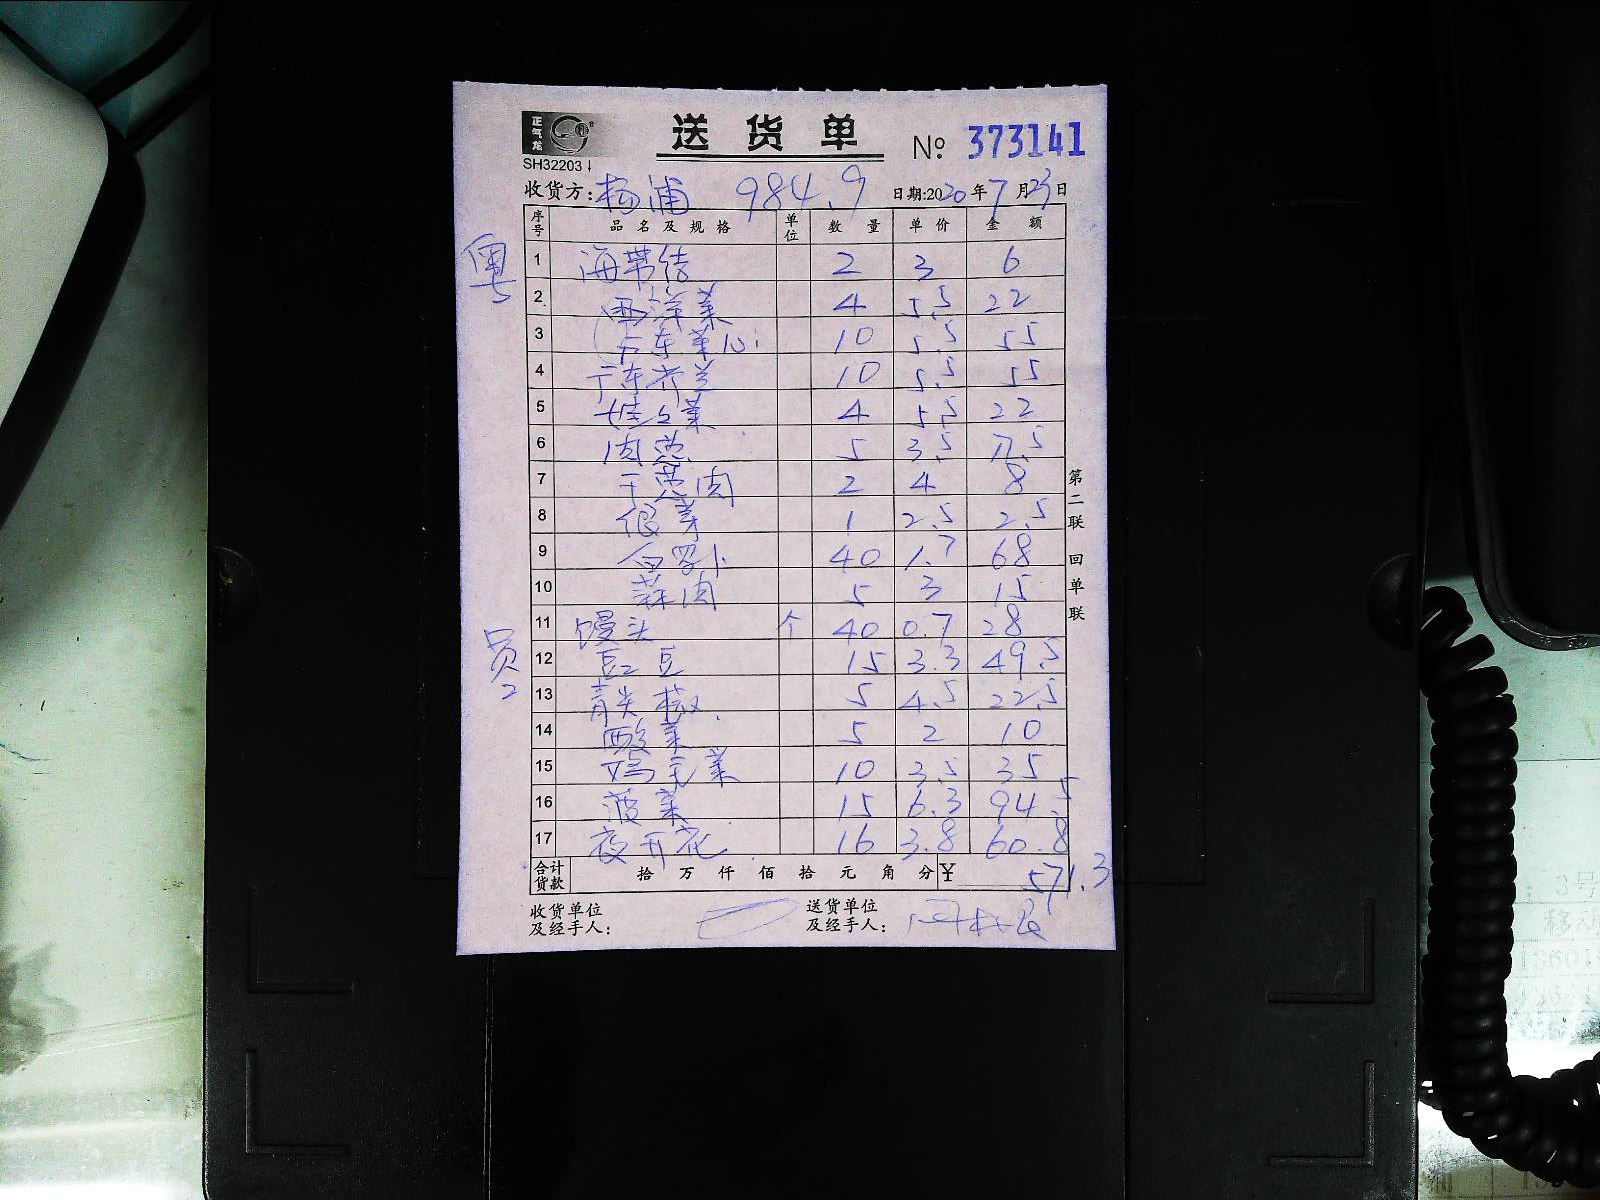 正气龙
送货单
№ 373141
SH32203
收货方: 杨浦 984.9 日期:2020年7月23日
序号 品名及规格 单位 数量 单价 金额
粤
1 海带结 2 3 6
2 西洋菜 4 5.5 22
3 广东菜心 10 5.5 55
4 广东芥兰 10 5.5 55
5 娃娃菜 4 5.5 22
6 肉葱 5 3.5 17.5
7 干葱肉 2 4 8
8 银芽 1 2.5 2.5
9 白罗卜 40 1.7 68
10 蒜肉 5 3 15
11 馒头 个 40 0.7 28
员
12 豇豆 15 3.3 49.5
13 青尖椒 5 4.5 22.5
14 酸菜 5 2 10
15 鸡毛菜 10 3.5 35
16 菠菜 15 6.3 94.5
17 夜开花 16 3.8 60.8
合计货款 拾 万 仟 佰 拾 元 角 分 ¥ 571.3
收货单位及经手人: 送货单位及经手人:
第二联 回单联
3号
移动